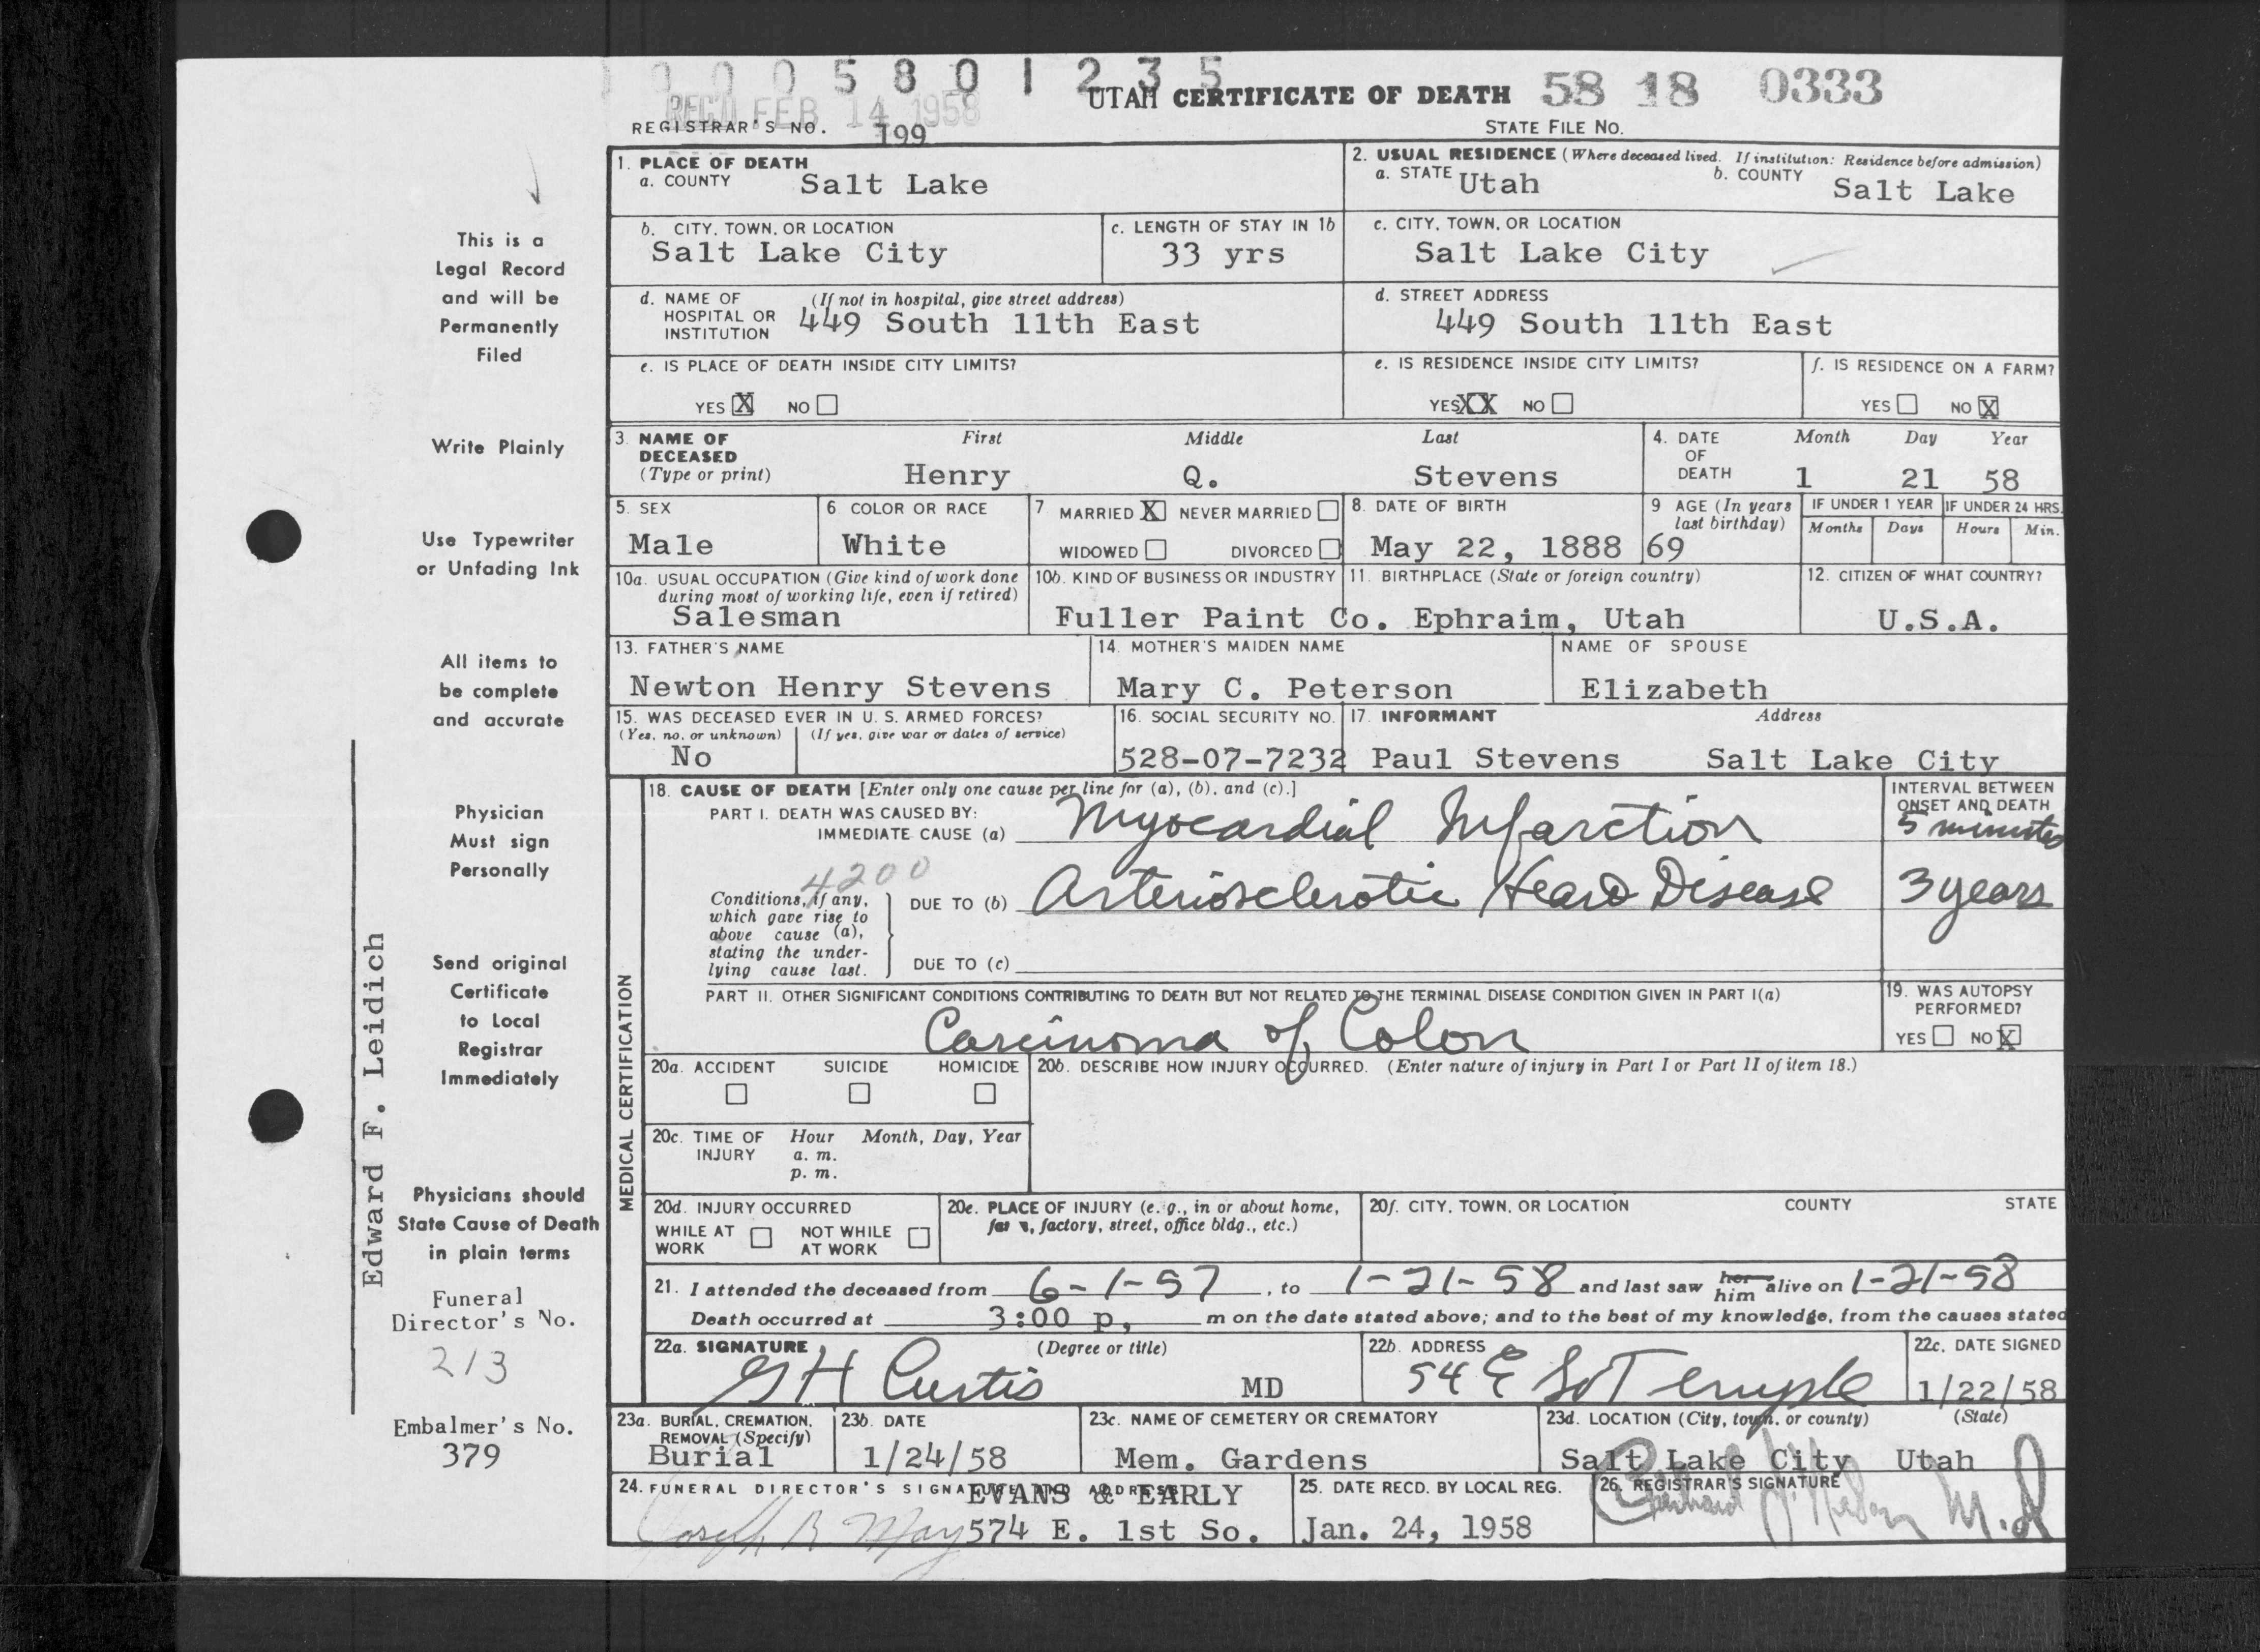 0 0 0 5 8 0 1 2 3 5
REC'D FEB 14 1958
UTAH CERTIFICATE OF DEATH 58 18 0333
REGISTRAR'S NO. 199
STATE FILE No.
1. PLACE OF DEATH
a. COUNTY Salt Lake
2. USUAL RESIDENCE (Where deceased lived. If institution: Residence before admission)
a. STATE Utah b. COUNTY Salt Lake
b. CITY, TOWN, OR LOCATION
Salt Lake City
c. LENGTH OF STAY IN 1b
33 yrs
c. CITY, TOWN, OR LOCATION
Salt Lake City
d. NAME OF HOSPITAL OR INSTITUTION (If not in hospital, give street address)
449 South 11th East
d. STREET ADDRESS
449 South 11th East
e. IS PLACE OF DEATH INSIDE CITY LIMITS?
YES X NO
e. IS RESIDENCE INSIDE CITY LIMITS?
YES XX NO
f. IS RESIDENCE ON A FARM?
YES NO X
3. NAME OF DECEASED (Type or print)
First Middle Last
Henry Q. Stevens
4. DATE OF DEATH
Month Day Year
1 21 58
5. SEX
Male
6. COLOR OR RACE
White
7 MARRIED X NEVER MARRIED
WIDOWED DIVORCED
8. DATE OF BIRTH
May 22, 1888
9 AGE (In years last birthday)
69
IF UNDER 1 YEAR
Months Days
IF UNDER 24 HRS.
Hours Min.
10a. USUAL OCCUPATION (Give kind of work done during most of working life, even if retired)
Salesman
10b. KIND OF BUSINESS OR INDUSTRY
Fuller Paint Co.
11. BIRTHPLACE (State or foreign country)
Ephraim, Utah
12. CITIZEN OF WHAT COUNTRY?
U.S.A.
13. FATHER'S NAME
Newton Henry Stevens
14. MOTHER'S MAIDEN NAME
Mary C. Peterson
NAME OF SPOUSE
Elizabeth
15. WAS DECEASED EVER IN U. S. ARMED FORCES?
(Yes, no, or unknown) (If yes, give war or dates of service)
No
16. SOCIAL SECURITY NO.
528-07-7232
17. INFORMANT Address
Paul Stevens Salt Lake City
MEDICAL CERTIFICATION
18. CAUSE OF DEATH [Enter only one cause per line for (a), (b), and (c).]
PART I. DEATH WAS CAUSED BY:
IMMEDIATE CAUSE (a) Myocardial Infarction
INTERVAL BETWEEN ONSET AND DEATH
5 minutes
4200
Conditions, if any, which gave rise to above cause (a), stating the underlying cause last.
DUE TO (b) Arteriosclerotic Heart Disease
3 years
DUE TO (c)
PART II. OTHER SIGNIFICANT CONDITIONS CONTRIBUTING TO DEATH BUT NOT RELATED TO THE TERMINAL DISEASE CONDITION GIVEN IN PART I(a)
Carcinoma of Colon
19. WAS AUTOPSY PERFORMED?
YES NO X
20a. ACCIDENT SUICIDE HOMICIDE
20b. DESCRIBE HOW INJURY OCCURRED. (Enter nature of injury in Part I or Part II of item 18.)
20c. TIME OF INJURY Hour Month, Day, Year
a. m.
p. m.
20d. INJURY OCCURRED
WHILE AT WORK NOT WHILE AT WORK
20e. PLACE OF INJURY (e. g., in or about home, farm, factory, street, office bldg., etc.)
20f. CITY, TOWN, OR LOCATION COUNTY STATE
21. I attended the deceased from 6-1-57, to 1-21-58 and last saw her him alive on 1-21-58
Death occurred at 3:00 p, m on the date stated above; and to the best of my knowledge, from the causes stated
22a. SIGNATURE (Degree or title)
G H Curtis MD
22b. ADDRESS
54 E So Temple
22c. DATE SIGNED
1/22/58
23a. BURIAL, CREMATION, REMOVAL (Specify)
Burial
23b. DATE
1/24/58
23c. NAME OF CEMETERY OR CREMATORY
Mem. Gardens
23d. LOCATION (City, town, or county) (State)
Salt Lake City Utah
24. FUNERAL DIRECTOR'S SIGNATURE ADDRESS
EVANS & EARLY
Joseph B May 574 E. 1st So.
25. DATE RECD. BY LOCAL REG.
Jan. 24, 1958
26. REGISTRAR'S SIGNATURE
M.D
This is a
Legal Record
and will be
Permanently
Filed
Write Plainly
Use Typewriter
or Unfading Ink
All items to
be complete
and accurate
Physician
Must sign
Personally
Send original
Certificate
to Local
Registrar
Immediately
Physicians should
State Cause of Death
in plain terms
Funeral
Director's No.
213
Embalmer's No.
379
Edward F. Leidich